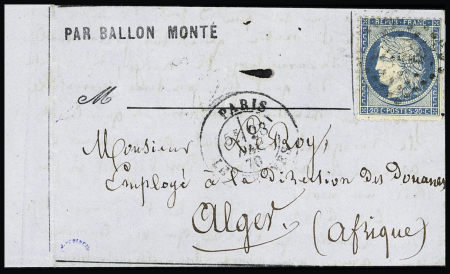 PAR BALLON MONTÉ
REPUB. FRANC.
20 C. POSTES 20 C.
M
PARIS
70
Monsieur Roy,
Employé à la Direction des Douanes
Alger (Afrique)